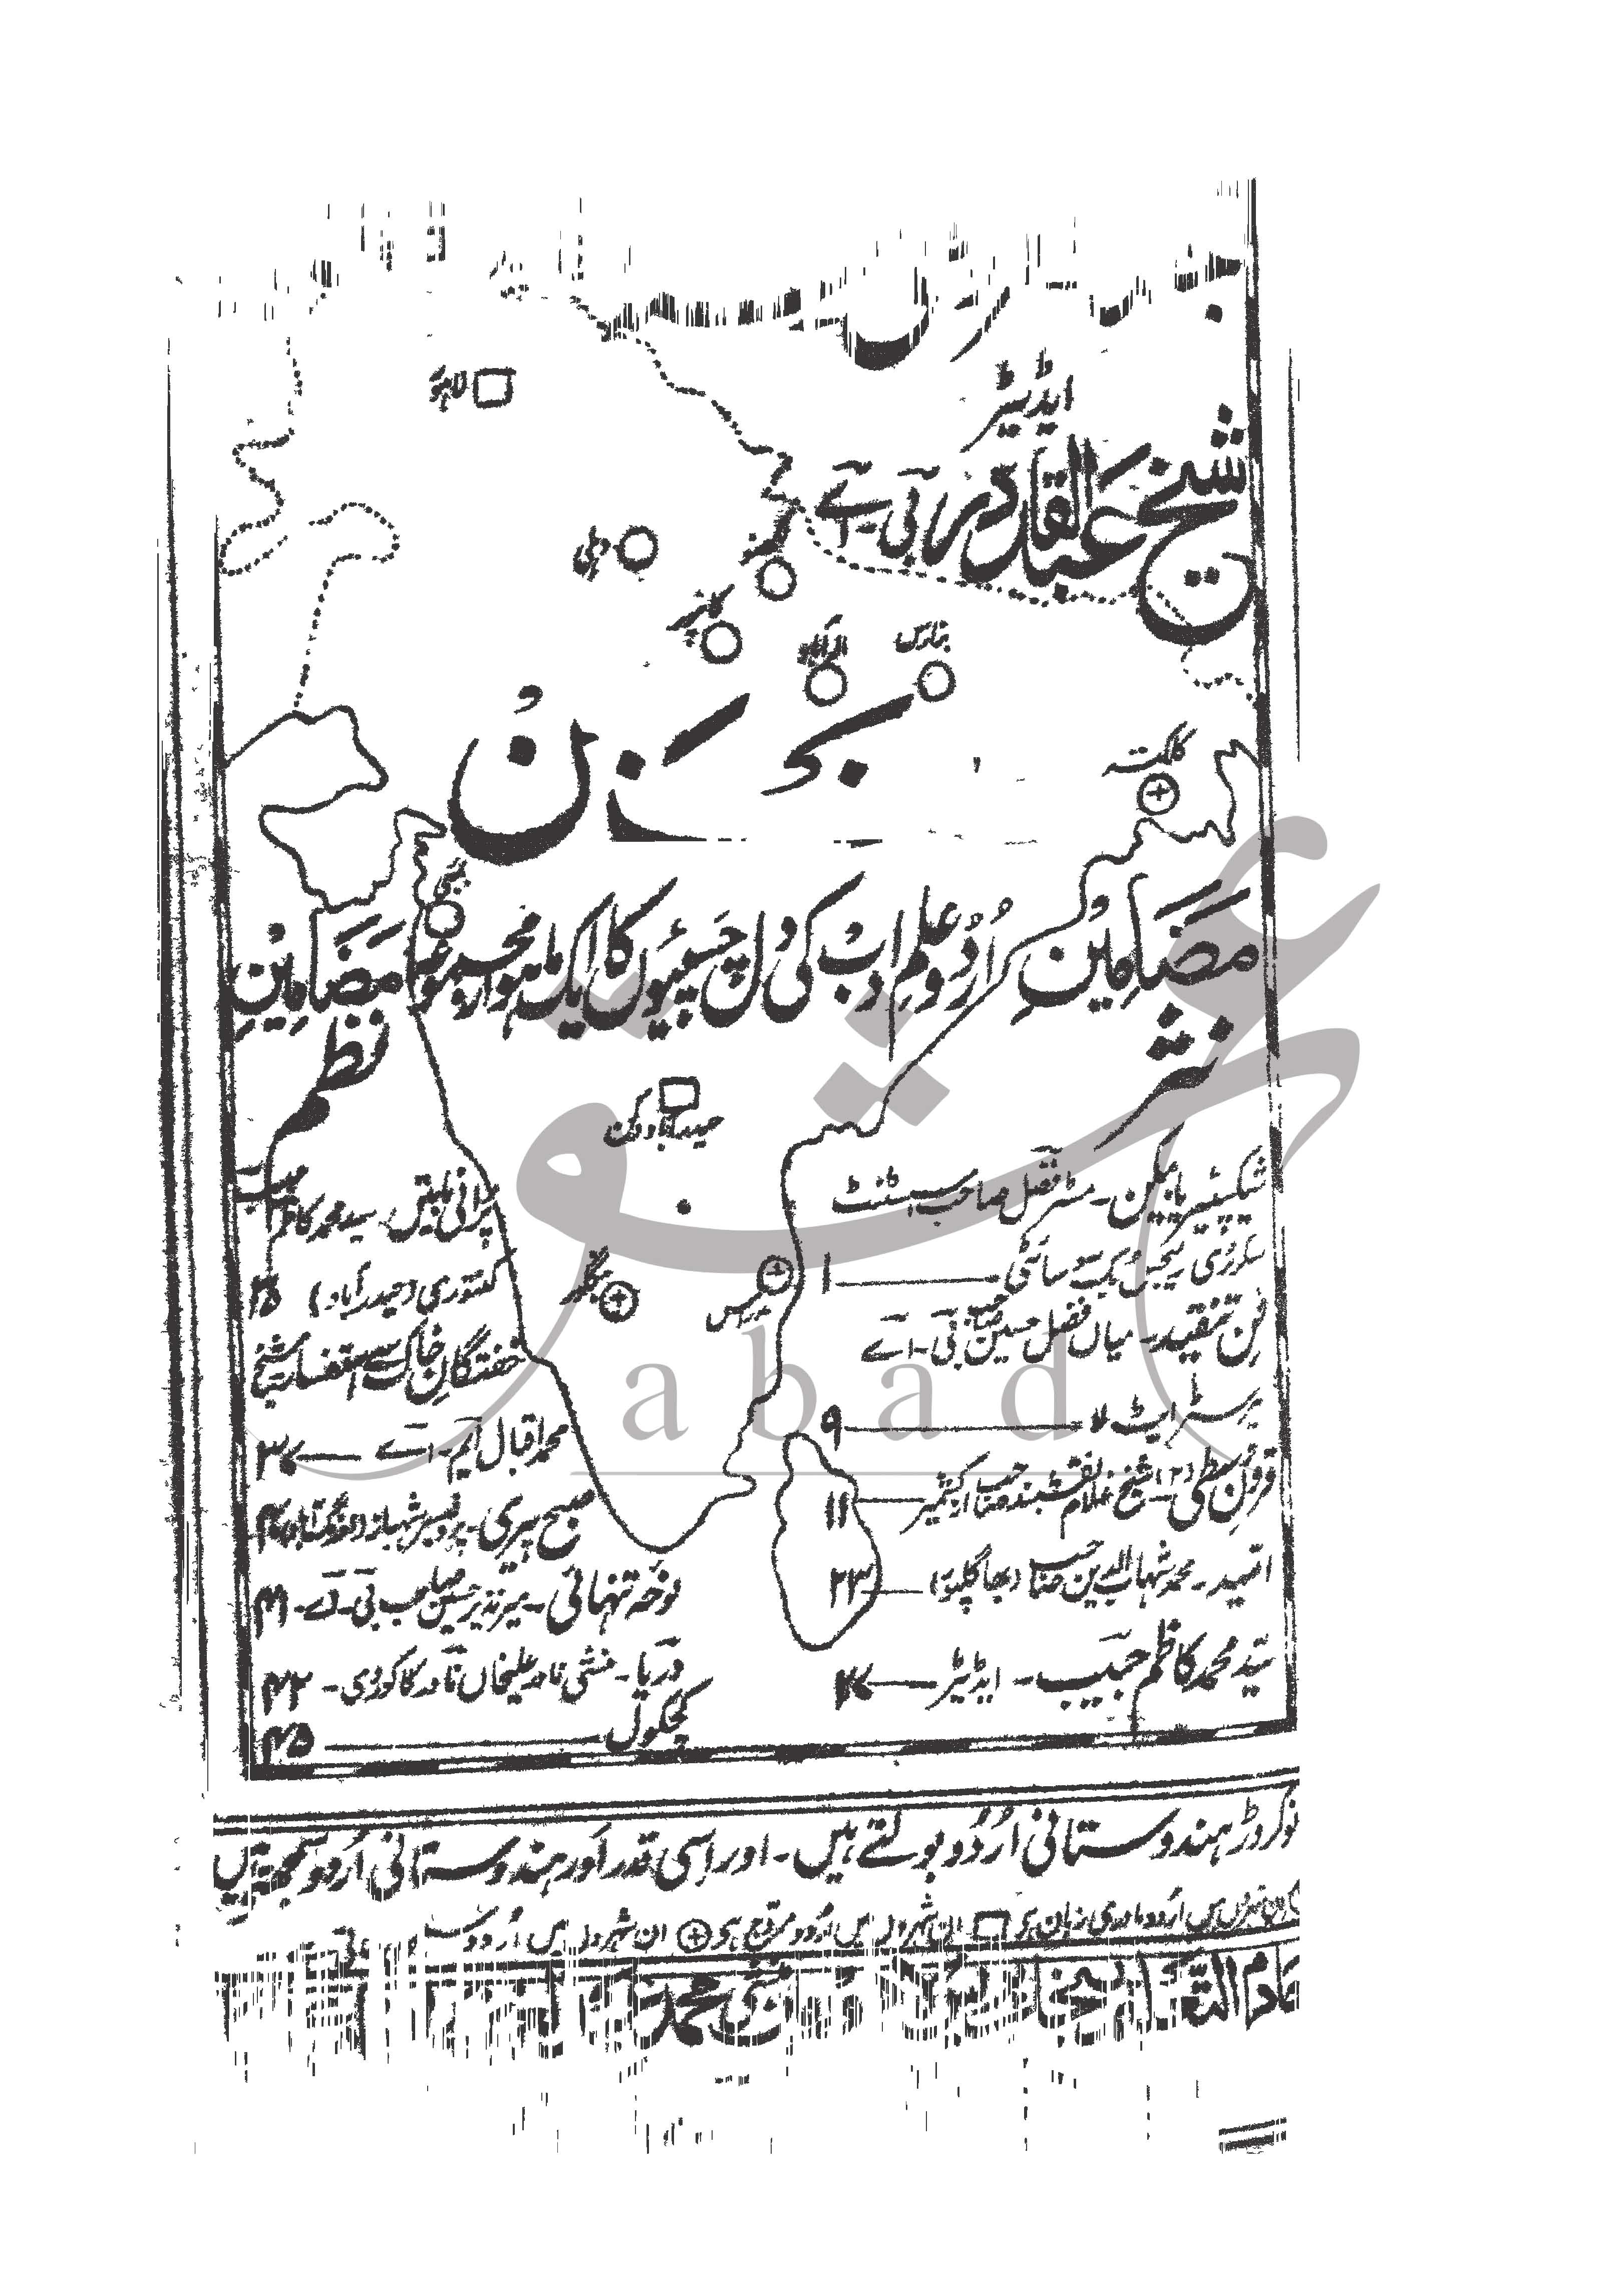 ایڈیٹر
شیخ عبدالقادر بی۔اے
لاہور
دہلی
لکھنؤ
کانپور
الہ آباد
بنارس
مخزن
کلکتہ
بمبئی
اُردو علم ادب کی دلچسپیوں کا ایک ماہوار مجموعہ
مضامینِ نثر
مضامینِ نظم
حیدرآباد دکن
بنگلور
مدراس
شیکسپیئر یا بیکن۔ مسٹر فضل صاحب اسسٹنٹ
سکرٹری ریلیجس بک سوسائٹی ۱
فنِ تنقید۔ میاں فضل حسین صاحب بی۔اے
بیرسٹر ایٹ لا ۹
قرونِ وسطیٰ (۲) شیخ غلام نقشبند صاحب از کشمیر ۱۱
امید۔ محمد شہاب الدین صاحب (بھاگلپور) ۲۳
سید محمد کاظم حبیب۔ ایڈیٹر ۲۷
پرانی باتیں۔ سید محمد کاظم حبیب
کنتوری (حیدرآباد) ۳۵
خفتگانِ خاک سے استفسار۔ شیخ
محمد اقبال ایم۔اے ۳۷
صبح پیری۔ پروفیسر شہباز (اورنگ آباد) ۴۰
نوحہ تنہائی۔ میر نذیر حسین صاحب بی۔اے۔ ۴۱
دریا۔ منشی نادر علیخاں نادر کاکوروی۔ ۴۲
کچکول ۴۵
نو کروڑ ہندوستانی اُردو بولتے ہیں۔ اور اسی قدر اَور ہندوستانی اُردو سمجھتے ہیں
ان شہروں میں اردو مادری زبان ہی ان شہروں میں اردو مروج ہی ان شہروں میں اُردو
منشی محمد
عشق
abad